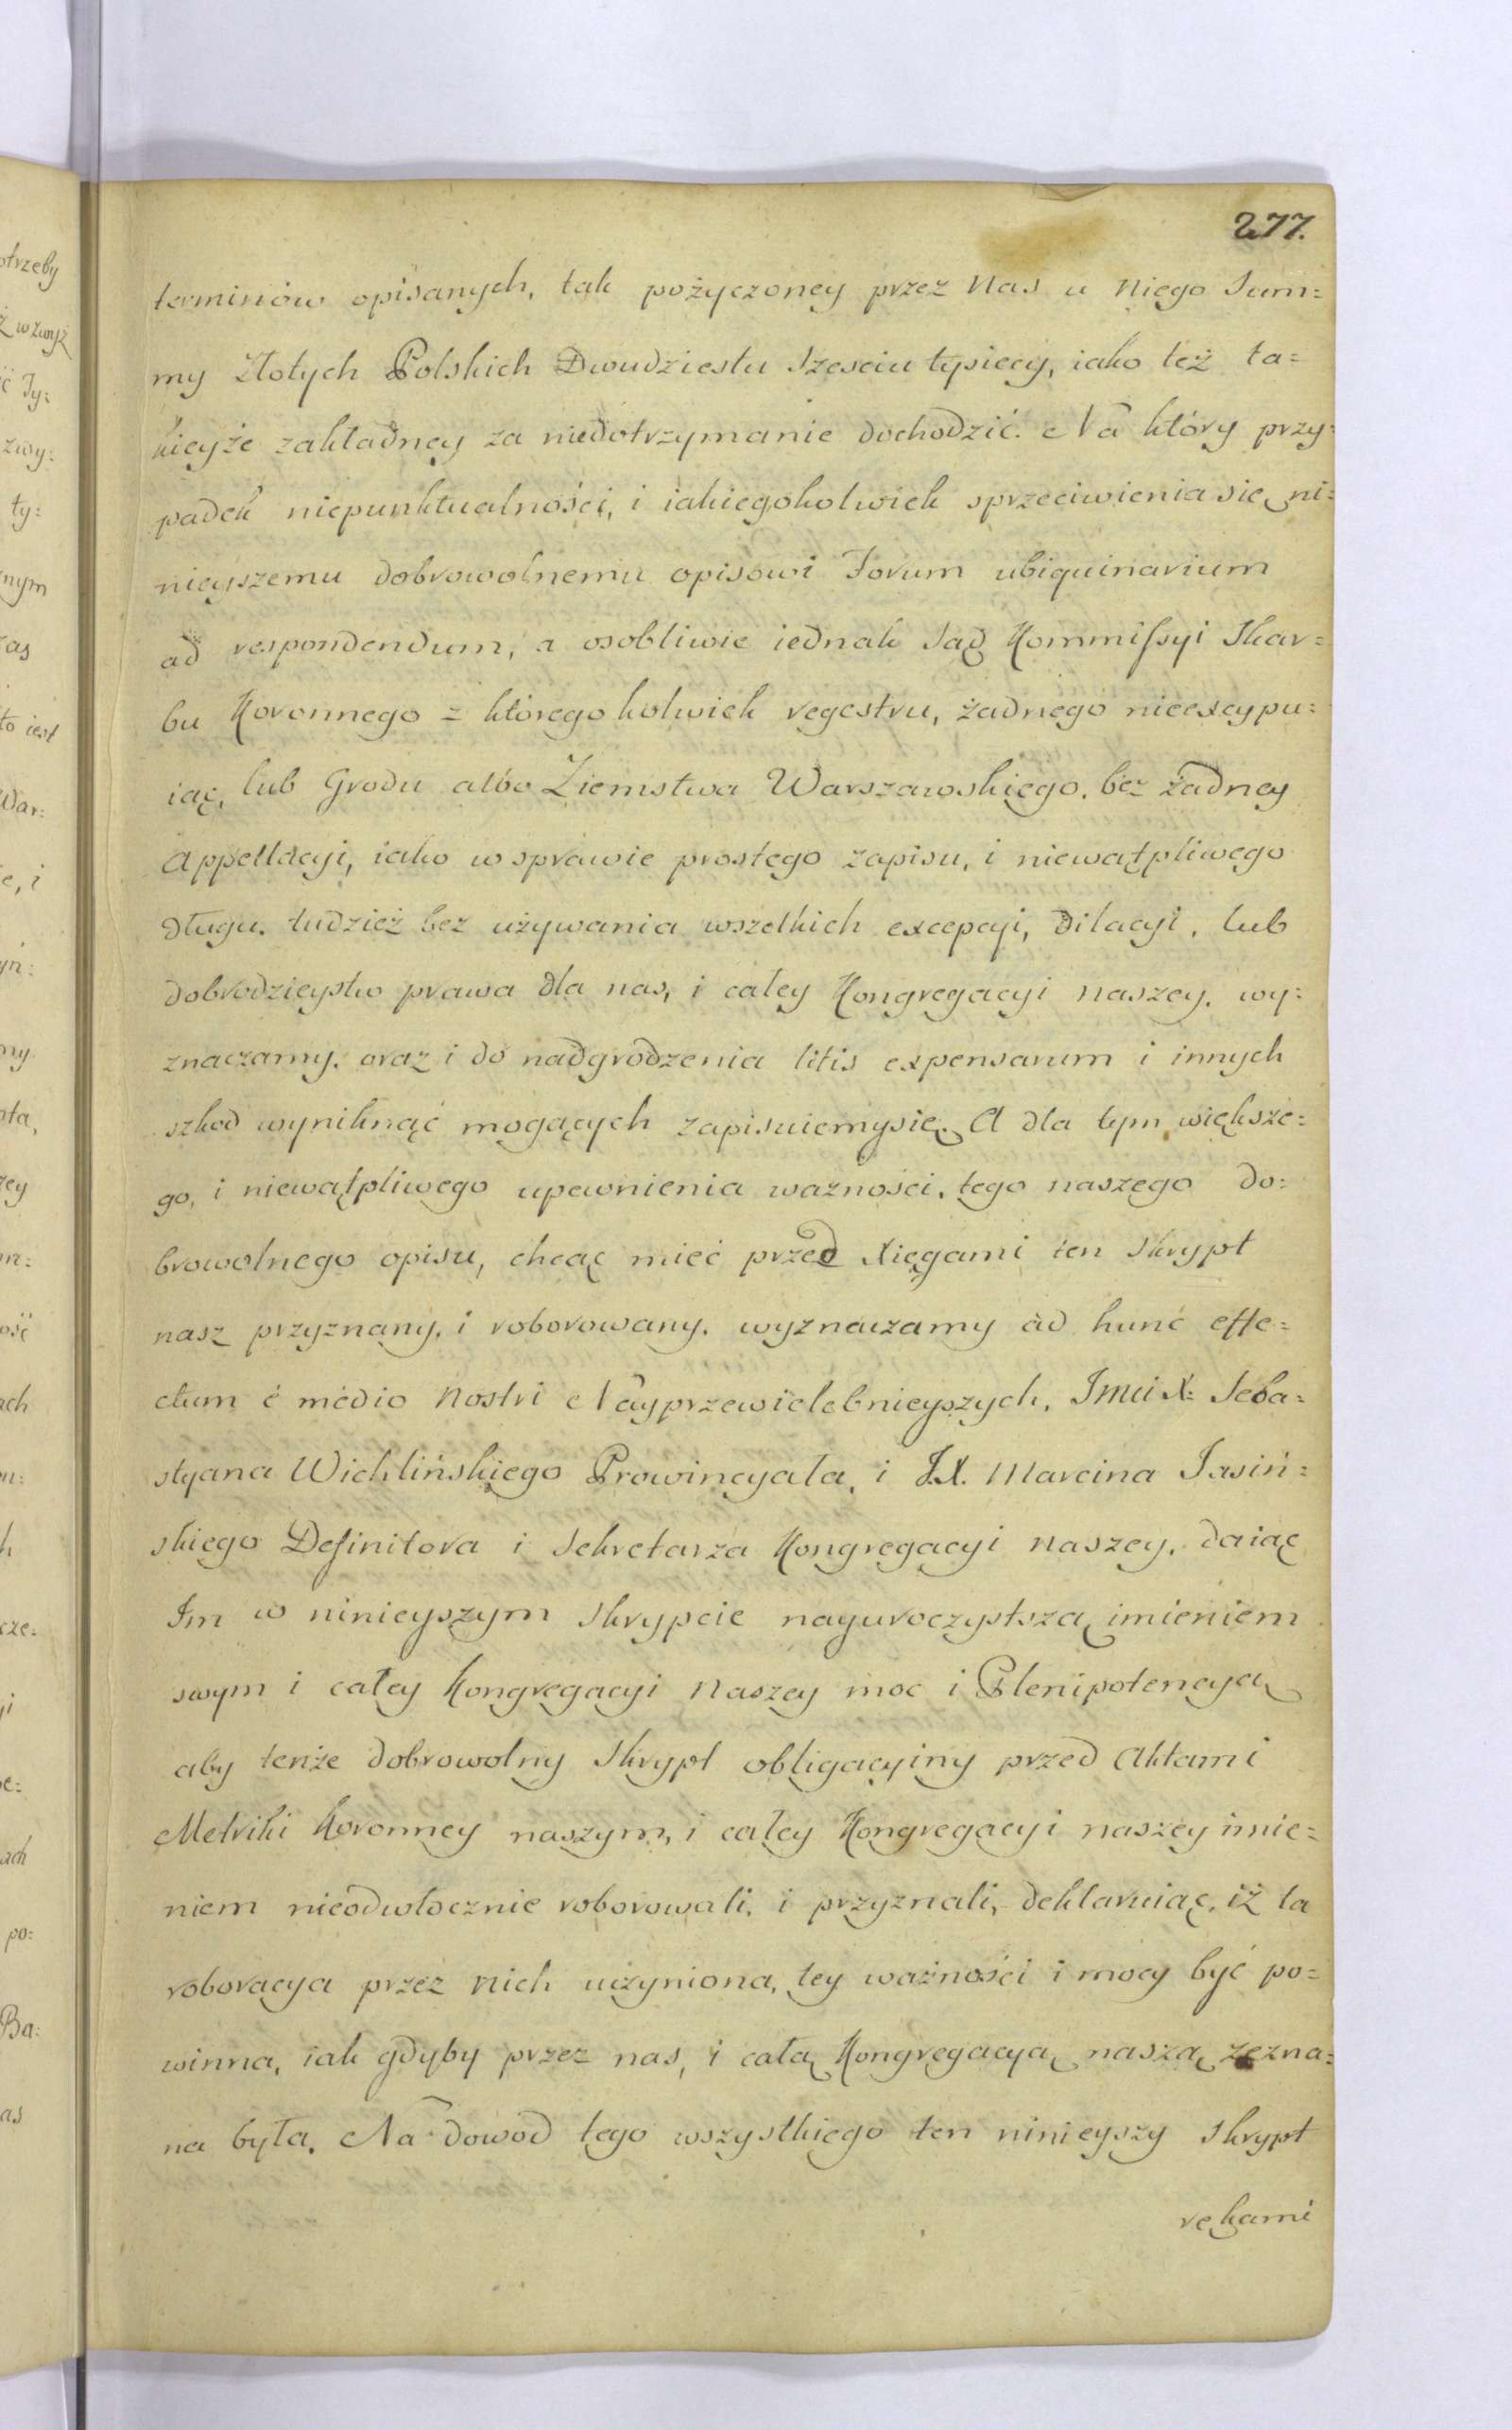 277.
terminów opisanych, tak pożyczoney przez Nas u Niego Sum=
my Złotych Polskich Dwudziestu Szesciu tysiecy, iako też ta=
kieyże zakładney za niedotrzymanie dochodzić. Na który przy=
padek niepunktualności, i iakiegokolwiek sprzeciwienia się ni=
nieyszemu dobrowolnemu opisowi Forum ubiquinarium
ad respondendum, a osobliwie iednak Sąd Kommissyi Skar=
bu Koronnego z którego kolwiek regestru, żadnego nieexcypu=
iąc, lub Grodu albo Ziemstwa Warszawskiego. bez żadney
Appellacyi, iako w sprawie prostego zapisu, i niewątpliwego
długu. tudzież bez używania wszelkich excepcyi, dilacyi, lub
dobrodzieystw prawa dla nas, i całey Kongregacyi naszey. wy=
znaczamy. oraz i do nadgrodzenia litis expensarum i innych
szkod wyniknąć mogących zapisuiemysię. A dla tym większe=
go, i niewątpliwego upewnienia ważności, tego naszego do=
browolnego opisu, chcąc mieć przed Xięgami ten Skrypt
nasz przyznany, i roborowany. wyznaczamy ad hunc effe=
ctum é medio Nostri Nayprzewielebnieyszych, Imci X: Seba=
styana Wichlińskiego Prowincyała, i J.X. Marcina Jasiń=
skiego Definitora i Sekretarza Kongregacyi Naszey, daiąc
Im w ninieyszym Skrypcie nayuroczystszą imieniem
swym i całey Kongregacyi Naszey moc i Plenipotencyą
aby tenże dobrowolny Skrypt obligacyiny przed Aktami
Metriki Koronney naszym, i całey Kongregacyi naszey imie=
niem nieodwłocznie roborowali, i przyznali, deklaruiąc, iż ta
roboracya przez Nich uczyniona, tey ważności i mocy być po=
winna, iak gdyby przez nas, i całą Kongregacyą naszą zezna=
na była. Na dowód tego wszystkiego ten ninieyszy Skrypt
rękami